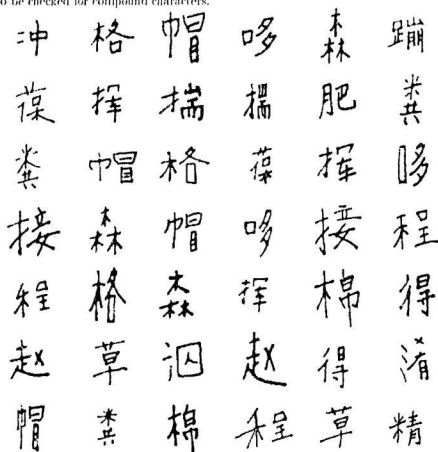 o be checked for compound characters.
冲 格 帽 哆 森 蹦
葆 挥 揣 揣 肥 粪
粪 帽 格 葆 挥 哆
接 森 帽 哆 接 程
程 格 森 挥 棉 得
赵 草 泅 赵 得 淆
帽 粪 棉 程 草 精